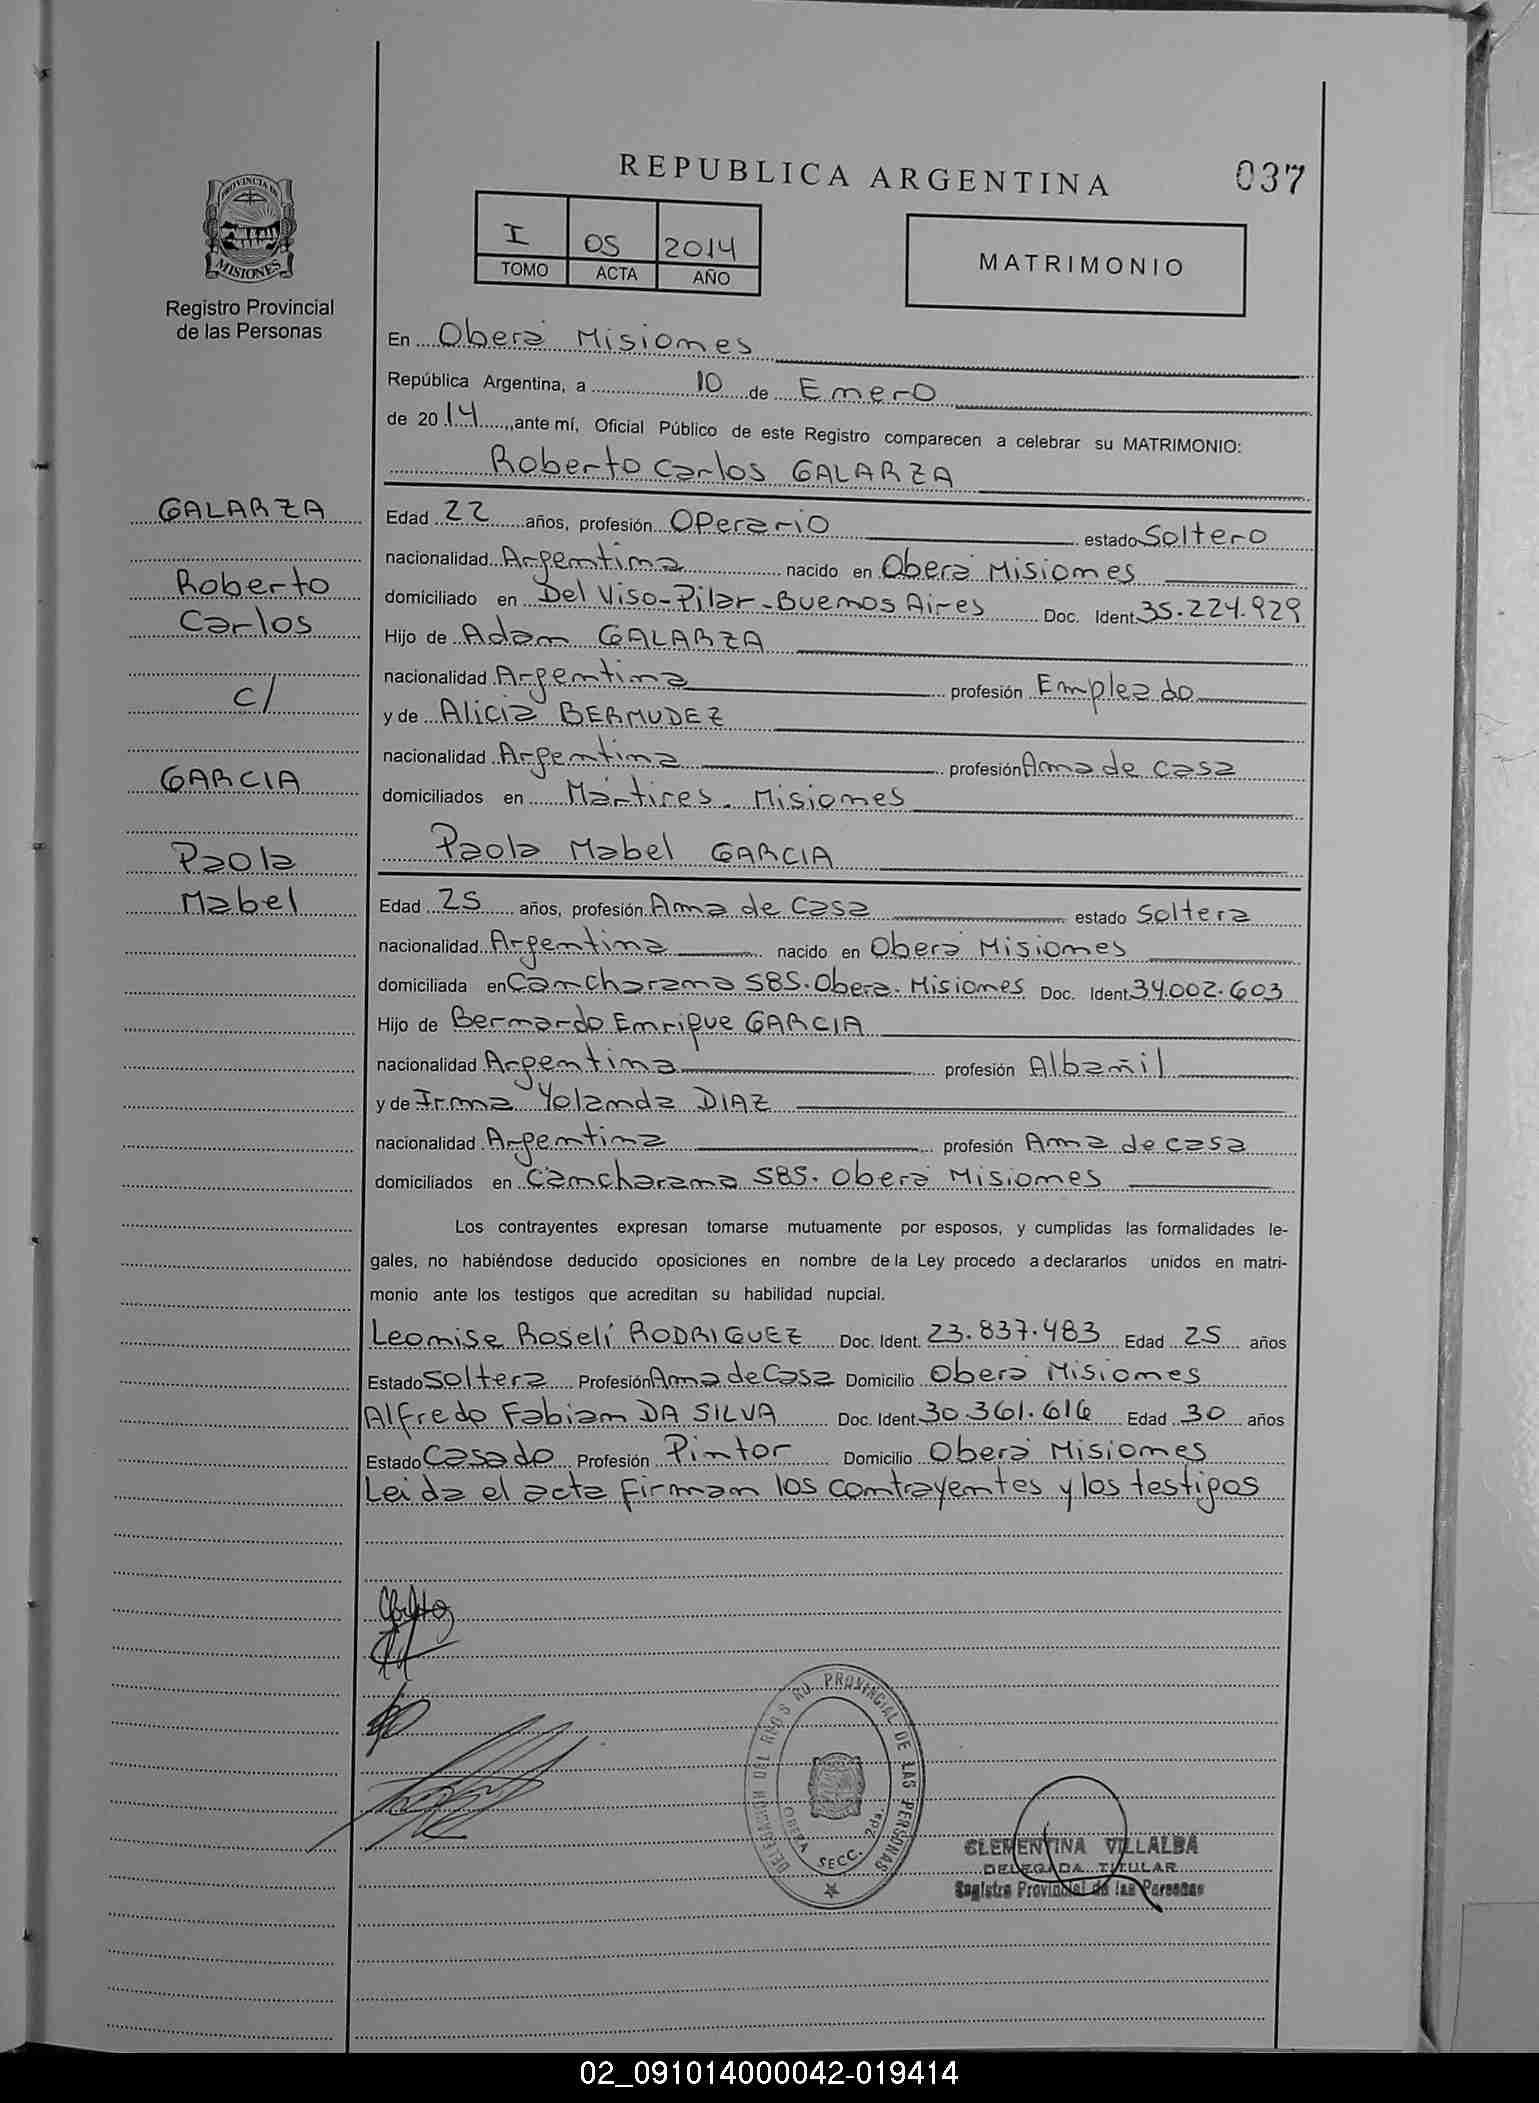 REPUBLICA ARGENTINA
037
PROVINCIA DE
MISIONES
Registro Provincial
de las Personas
I
05
2014
TOMO
ACTA
AÑO
MATRIMONIO
En Oberá Misiones
República Argentina, a 10 de Enero
de 2014, ante mí, Oficial Público de este Registro comparecen a celebrar su MATRIMONIO:
Roberto Carlos GALARZA
GALARZA
Roberto
Carlos
c/
GARCIA
Paola
Mabel
Edad 22 años, profesión Operario estado Soltero
nacionalidad Argentina nacido en Oberá Misiones
domiciliado en Del Viso-Pilar-Buenos Aires Doc. Ident. 35.224.929
Hijo de Adam GALARZA
nacionalidad Argentina profesión Empleado
y de Alicia BERMUDEZ
nacionalidad Argentina profesión Ama de casa
domiciliados en Mártires. Misiones
Paola Mabel GARCIA
Edad 25 años, profesión Ama de Casa estado Soltera
nacionalidad Argentina nacido en Oberá Misiones
domiciliada en Cancharana 585. Oberá. Misiones Doc. Ident. 34.002.603
Hijo de Bernardo Enrique GARCIA
nacionalidad Argentina profesión Albañil
y de Irma Yolanda DIAZ
nacionalidad Argentina profesión Ama de casa
domiciliados en Cancharana 585. Oberá Misiones
Los contrayentes expresan tomarse mutuamente por esposos, y cumplidas las formalidades le-
gales, no habiéndose deducido oposiciones en nombre de la Ley procedo a declararlos unidos en matri-
monio ante los testigos que acreditan su habilidad nupcial.
Leonise Roselí RODRIGUEZ Doc. Ident. 23.837.483 Edad 25 años
Estado Soltera Profesión Ama de Casa Domicilio Oberá Misiones
Alfredo Fabian DA SILVA Doc. Ident. 30.361.616 Edad 30 años
Estado Casado Profesión Pintor Domicilio Oberá Misiones
Leida el acta firman los contrayentes y los testigos
PROVINCIAL DE LAS PERSONAS
OBERA SECC. 2da.
CLEMENTINA VILLALBA
DELEGADA TITULAR
Registro Provincial de las Personas
02_091014000042-019414